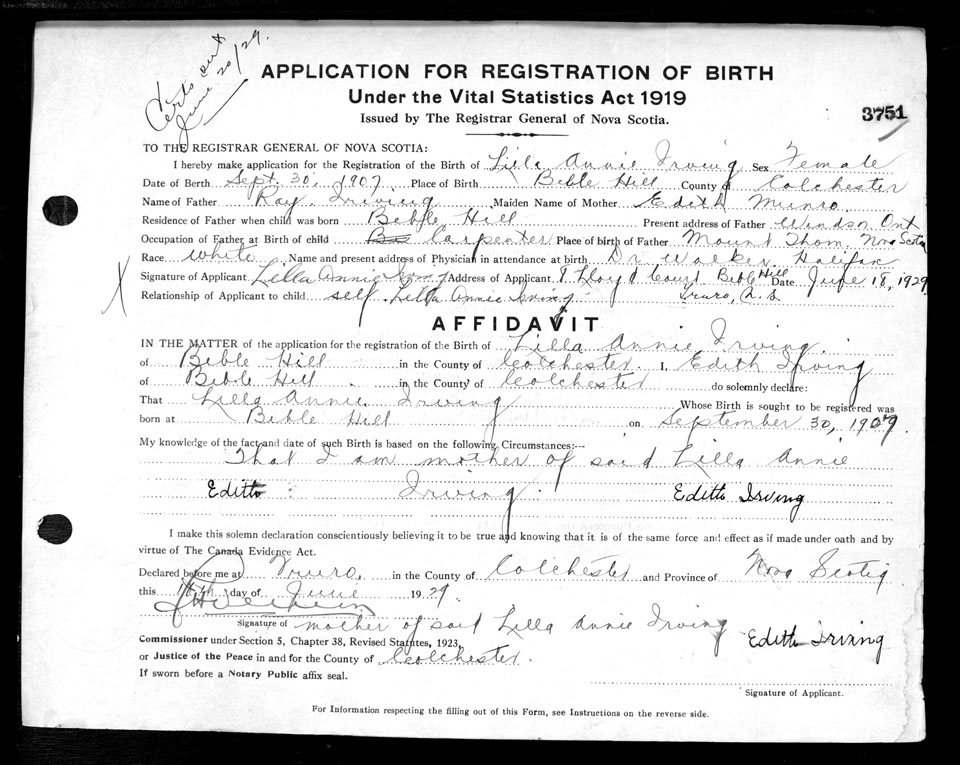 Certs out
June 20/29.
APPLICATION FOR REGISTRATION OF BIRTH
Under the Vital Statistics Act 1919
3751
Issued by The Registrar General of Nova Scotia.
TO THE REGISTRAR GENERAL OF NOVA SCOTIA:
I hereby make application for the Registration of the Birth of Lilla Annie Irving Sex Female
Date of Berth Sept. 30, 1907 Place of Birth Bible Hill County of Colchester
Name of Father Ray Irving Maiden Name of Mother Edith Munro
Residence of Father when child was born Bible Hill Present address of Father Windsor Ont
Occupation of Father at Birth of child Carpenter Place of birth of Father Mount Thom. Nova Scotia
Race white Name and present address of Physician in attendance at birth Dr Walker Halifax
Signature of Applicant Lilla Annie Irving Address of Applicant Lloyd Court Bible Hill Date June 18, 1929
Relationship of Applicant to child self. Lilla Annie Irving Truro, N.S
AFFIDAVIT
IN THE MATTER of the application for the registration of the Birth of Lilla Annie Irving.
of Bible Hill in the County of Colchester. I, Edith Irving
of Bible Hill in the County of Colchester do solemnly declare:
That Lilla Annie Irving Whose Birth is sought to be registered was
born at Bible Hill on September 30, 1907.
My knowledge of the fact and date of such Birth is based on the following Circumstances:--
That I am mother of said Lilla Annie
Edith Irving. Edith Irving
I make this solemn declaration conscientiously believing it to be true and knowing that it is of the same force and effect as if made under oath and by
virtue of The Canada Evidence Act.
Declared before me at Truro, in the County of Colchester and Province of Nova Scotia
this day of June 1929.
Signature of mother of said Lilla Annie Irving Edith Irving
Commissioner under Section 5, Chapter 38, Revised Statutes, 1923,
or Justice of the Peace in and for the County of Colchester.
If sworn before a Notary Public affix seal.
Signature of Applicant.
For Information respecting the filling out of this Form, see Instructions on the reverse side.